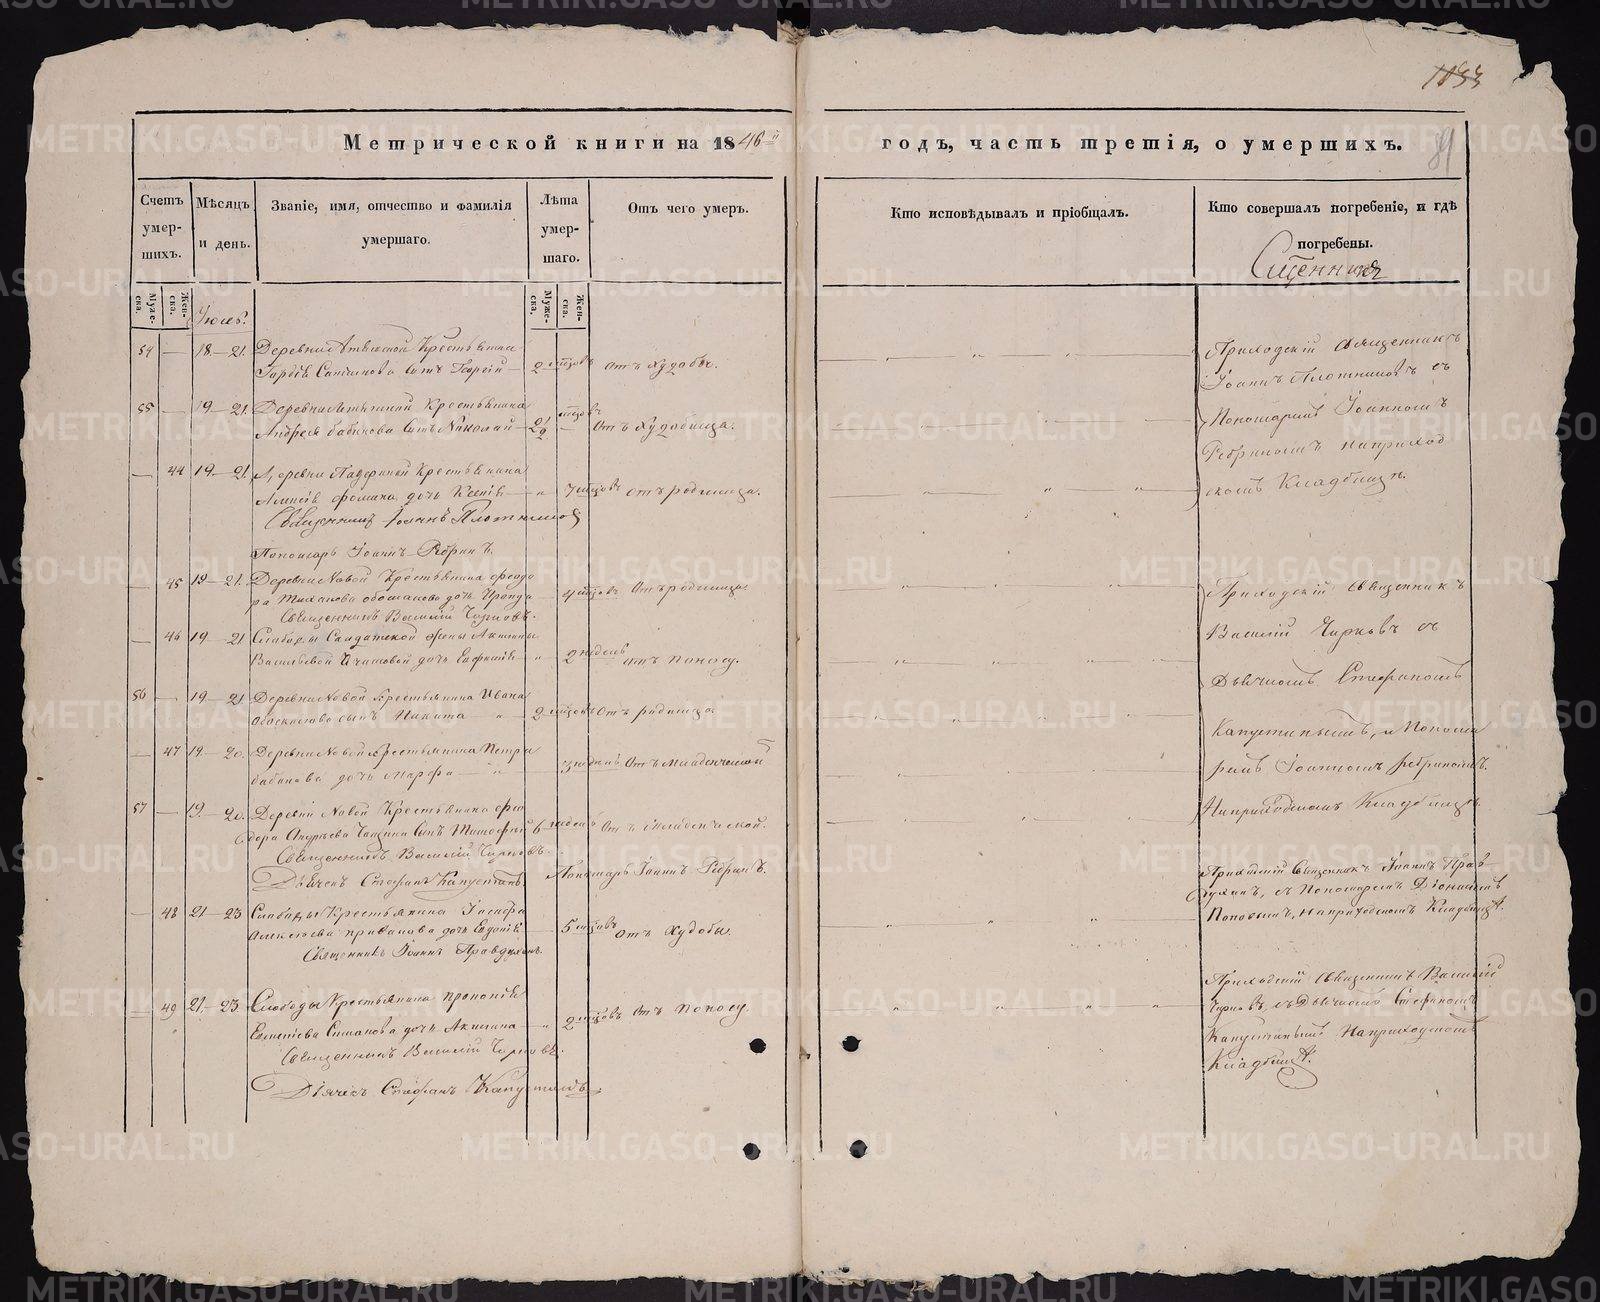 1133
89
Метрической книги на 1846й годъ, часть третія, о умершихъ.
Счетъ умершихъ.
Мѣсяцъ и день.
Званіе, имя, отчество и фамилія умершаго.
Лѣта умершаго.
Отъ чего умеръ.
Кто исповѣдывалъ и пріобщалъ.
Кто совершалъ погребеніе, и гдѣ погребены.
Мужеска.
Женска.
Мужеска.
Женска.
Іюль.
54 — 18 — 21. Деревни Крестьянина
сынъ Георгій — 2 мѣсяц. отъ худобы.
55 — 19 — 21. Деревни Крестьянина
Андрея Бабинова сынъ Николай — 2 1/2 отъ худобища.
— 44 19 — 21. Деревни Крестьянина
Алексѣя Фомина дочь Ксенія — 7 мѣсяцовъ отъ родимца.
Священникъ Іоаннъ Плотниковъ
Пономарь Іоаннъ Ребринъ.
— 45 19 — 21. Деревни Новой Крестьянина Ѳеодо
ра дочь Ираида 4 мѣсяцовъ отъ родимца.
Священникъ Василій Чирковъ.
— 46 19 — 21 Слободы Солдатской жены Акилины
Васильевой дочь Евфимія — 2 недѣль отъ поносу.
56 — 19 — 21 Деревни Новой Крестьянина Ивана
сынъ Никита — 2 мѣсяцовъ отъ родимца.
— 47 19 — 20. Деревни Новой Крестьянина Петра
Бабинова дочь Марфа — 3 недѣль отъ младенческой
57 — 19 — 20. Деревни Новой Крестьянина Ѳео
дора Андреева сынъ Тимофей 6 недѣль отъ младенческой.
Священникъ Василій Чирковъ.
Дьячекъ Стефанъ Капустинъ Пономарь Іоаннъ Ребринъ.
— 48 21 — 23 Слободы Крестьянина
Алексѣева дочь Евдокія 5 мѣсяцовъ отъ худобы.
Священникъ Іоаннъ Правдухинъ.
— 49 21 — 23. Слободы Крестьянина Прокопія
Симанова дочь Акилина — 2 мѣсяцовъ отъ поносу.
Священникъ Василій Чирковъ.
Дьячекъ Стефанъ Капустинъ
Приходскій Священникъ
Іоаннъ Плотниковъ съ
Пономаремъ Іоанномъ
Ребринымъ на приход
скомъ Кладбищѣ.
Приходскій Священникъ
Василій Чирковъ съ
Дьячкомъ Стефаномъ
Капустинымъ, и Понома
ремъ Іоанномъ Ребринымъ.
На приходскомъ Кладбищѣ.
Приходскій Священникъ Іоаннъ Прав
духинъ, съ Пономаремъ Діонисіемъ
Поповымъ, на приходскомъ Кладбищѣ.
Приходскій Священникъ Василій
Чирковъ, съ Дьячкомъ Стефаномъ
Капустинымъ на приходскомъ
Кладбищѣ.
METRIKI.GASO-URAL.RU